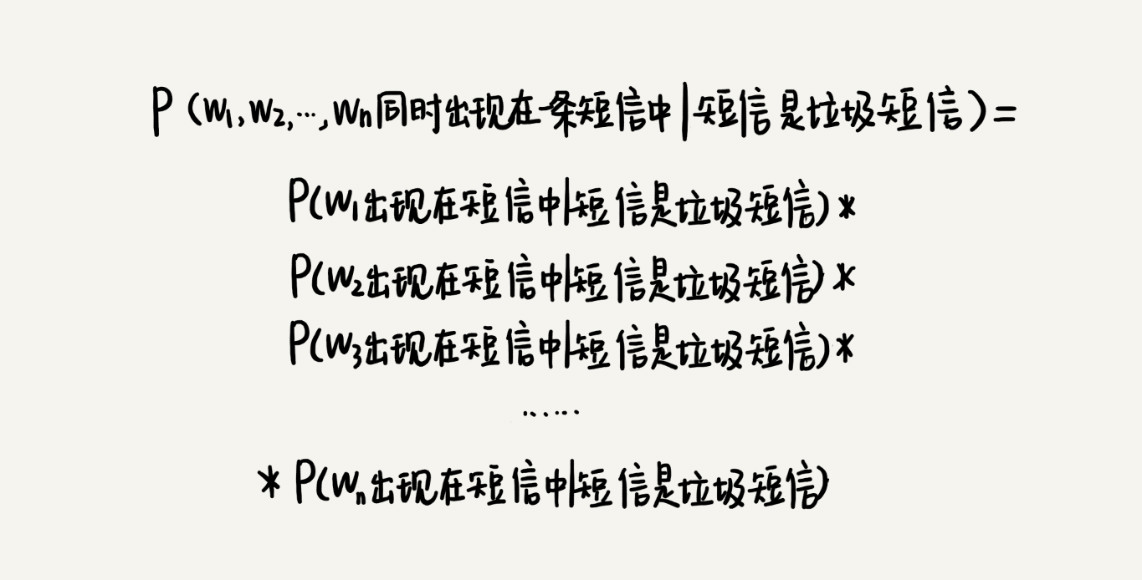 P(W₁,W₂,…,Wn同时出现在一条短信中|短信是垃圾短信)=
P(W₁出现在短信中|短信是垃圾短信)*
P(W₂出现在短信中|短信是垃圾短信)*
P(W₃出现在短信中|短信是垃圾短信)*
……
*P(Wn出现在短信中|短信是垃圾短信)